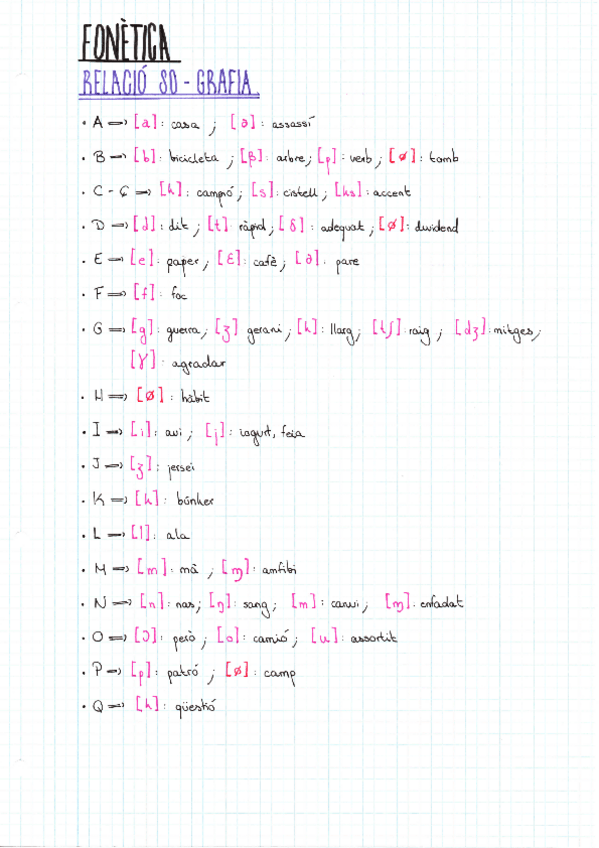 FONÈTICA
RELACIÓ SO - GRAFIA
• A => [a]: casa ; [ə]: assassí
• B => [b]: bicicleta ; [β]: arbre; [p]: verb; [ø]: tomb
• C - Ç => [k]: campió; [s]: cistell; [ks]: accent
• D => [d]: dit; [t]: ràpid; [δ]: adequat; [ø]: dividend
• E => [e]: paper; [ɛ]: cafè; [ə]: pare
• F => [f]: foc
• G => [g]: guerra; [ʒ] gerani; [k]: llarg; [tʃ]: raig ; [dʒ]: mitges;
[ɣ]: agradar
• H => [ø]: hàbit
• I => [i]: avi ; [j]: iogurt, feia
• J => [ʒ]: jersei
• K => [k]: búnker
• L => [l]: ala
• M => [m]: mà ; [ɱ]: amfibi
• N => [n]: nas; [ŋ]: sang; [m]: canvi; [ɱ]: enfadat
• O => [ɔ]: però ; [o]: camió; [u]: assortit
• P => [p]: patró ; [ø]: camp
• Q => [k]: qüestió